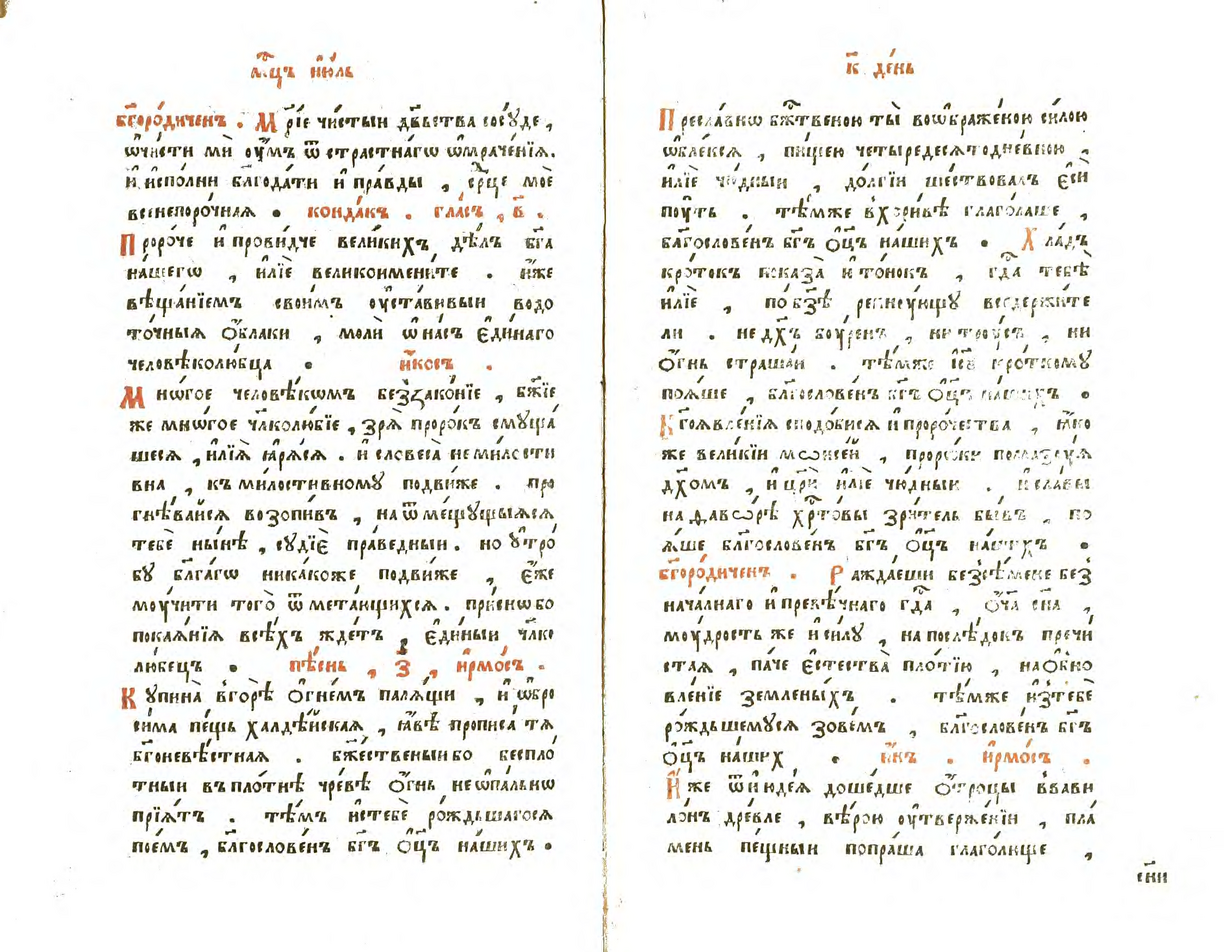 мⷭ҇цъ і҆ю́ль
бг҃оро́диченъ . Мр҃і́е чи́стыи дв҃ьства сосꙋ́де ,
ѡ҆чи́сти мѝ оу҆́мъ ѿ стра́стнагѡ ѡ҆мраче́нїѧ.
и҆ и҆спо́лни бл҃года́ти и҆ пра́вды , ср҃це моѐ
всенепоро́чнаѧ . конда́къ . гла́съ , в҃ .
Проро́че и҆ прови́дче вели́кихъ дѣ́лъ бг҃а
на́шегѡ , и҆лїѐ великоимени́те . и҆́же
вѣща́нїемъ свои́мъ оу҆ста́вивыи водо
то́чныѧ ѻ҆́блаки , молѝ ѡ҆ на́съ є҆ди́наго
человѣколю́бца . и҆́косъ .
Мнѡ́гое человѣ́кѡмъ беззако́нїе , бж҃їе
же мнѡ́гое чл҃колю́бїе , зрѧ̀ проро́къ смꙋща́
шесѧ , и҆лїѧ̀ ꙗ҆рѧ́сѧ . и҆ словеса̀ неми́лости
вна , къ ми́лостивномꙋ подви́же . про
гнѣ́вайсѧ возопи́въ , на ѿмещꙋ́щыѧсѧ
тебѐ ны́нѣ , сꙋдїѐ пра́ведныи . но ᲂу҆тро́
бꙋ бл҃га́гѡ ника́коже подви́же , є҆́же
моу́чити того̀ ѿмета́ющихсѧ . при́снѡ бо
покаѧ́нїѧ всѣ́хъ жде́тъ , є҆ди́ныи чл҃ко
лю́бецъ . пѣ́снь , з҃ , і҆рмо́съ .
Кꙋпина̀ вгорѣ̀ ѻ҆гне́мъ палѧ́щи , и҆ ѡ҆бро
си́ма пе́щь халдѣ́йскаѧ , ꙗ҆́вѣ прописа́ тѧ
бг҃оневѣ́стнаѧ . бж҃е́ственыи бо беспло́
тныи въ пло́тнѣ чре́вѣ ѻ҆́гнь , неѡ҆па́льнѡ
прїѧ́тъ . тѣ́мъ и҆с тебѐ ро́ждьшагосѧ
пое́мъ , бл҃гослове́нъ бг҃ъ ѻ҆ц҃ъ на́шихъ .
к҃ де́нь
Пресла́внѡ бж҃твеною ты̀ воѡ҆браже́ною си́лою
ѡ҆бле́ксѧ , пи́щею четыредесѧтодне́вною ,
и҆лїѐ чю́дныи , до́лгїи ше́ствовалъ є҆сѝ
поу́ть . тѣ́мже в хори́вѣ глаго́лаше ,
бл҃гослове́нъ бг҃ъ ѻ҆ц҃ъ на́шихъ . Хла́дъ
кро́токъ показа̀ и҆ то́нокъ , гд҃а тебѣ̀
и҆лїѐ , по бз҃ѣ ревнꙋ́ющꙋ вседержи́те
ли . не дх҃ъ боу́ренъ , ни троу́съ , ни
ѻ҆́гнь стра́шаи . тѣ́мже і҆с҃ѣ кро́ткомꙋ
поѧ́ше , бл҃гослове́нъ бг҃ъ ѻ҆ц҃ъ на́шихъ .
Бг҃оѧвле́нїѧ сподо́бисѧ и҆ проро́чества , ꙗ҆́ко
же вели́кїи мѡѵсе́й , проро́ки помазꙋ́ѧ
дх҃омъ , и҆ цр҃ѝ и҆лїѐ чю́дныи . и҆ сла́вы
на ѳавѡ́рѣ хр҃то́вы зри́тель бы́въ , по
ѧ́ше бл҃гослове́нъ бг҃ъ ѻ҆ц҃ъ на́шихъ .
бг҃оро́диченъ . Ражда́еши безсѣ́мене без
нача́лнаго и҆ преве́чнаго гд҃а , ѻ҆́ч҃а сн҃а ,
моу́дрость же и҆ си́лꙋ , на послѣ́докъ пречи́
стаѧ , па́че є҆стества̀ пло́тїю , на ѻ҆бно
вле́нїе земле́ныхъ . тѣ́мже и҆з тебѐ
ро́ждьшемꙋсѧ зове́мъ , бл҃гослове́нъ бг҃ъ
ѻ҆ц҃ъ на́ших . и҆́нъ . і҆рмо́съ .
И҆́же ѿ и҆юде́ѧ доше́дше ѻ҆́троцы в вави
ло́нъ дре́вле , вѣ́рою оу҆твержде́нїи , пла́
мень пе́щныи попра́ша глаго́люще ,
сн҃и